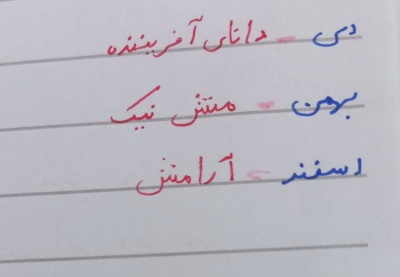 دی - دانای آفریننده
بهمن - منش نیک
اسفند - آرامش